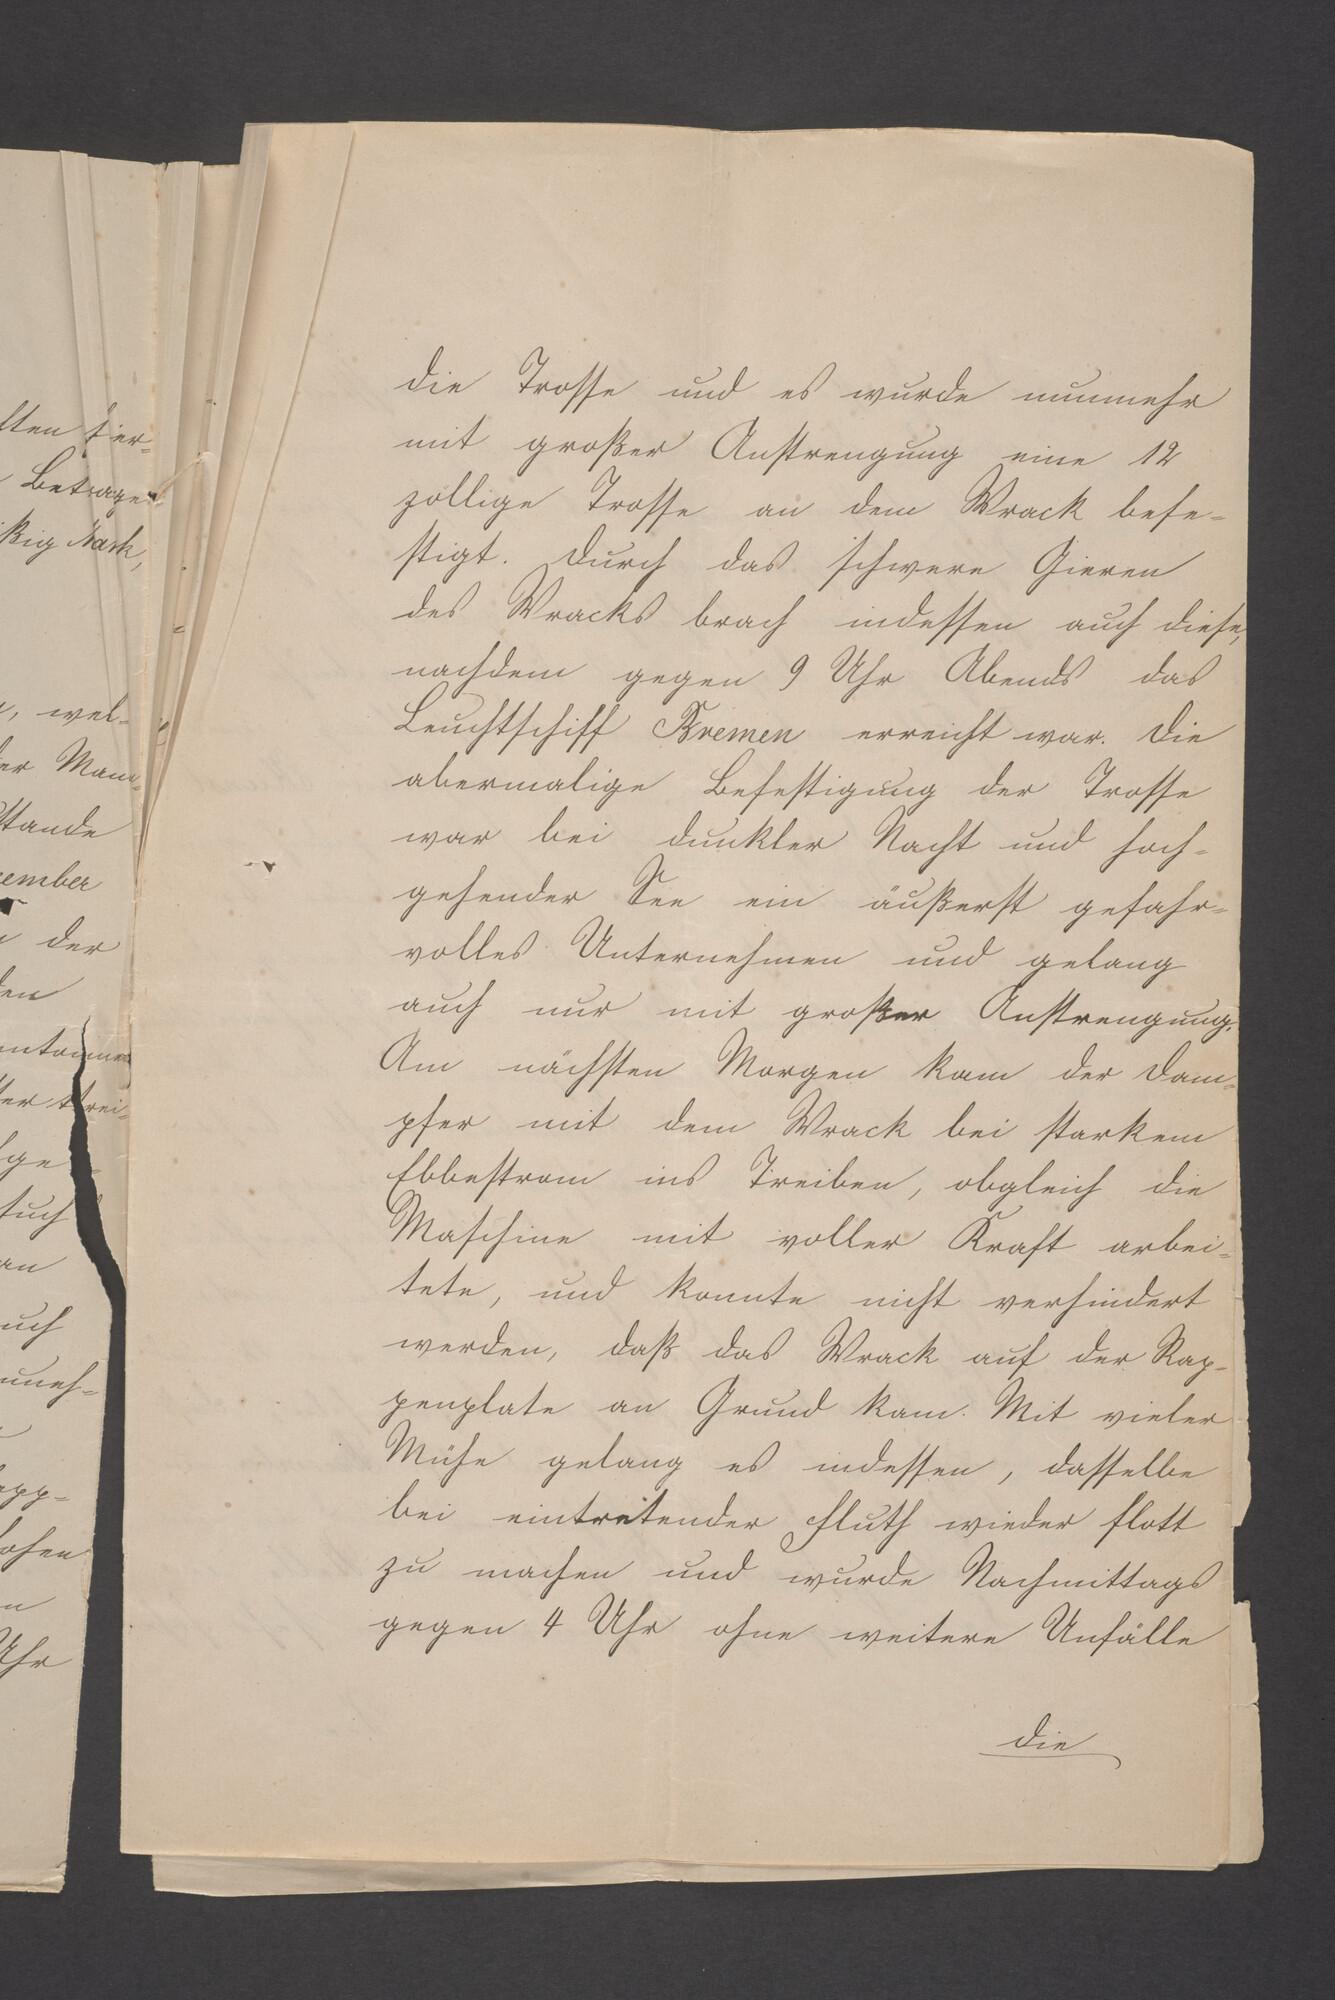 lten hier-
Betrage
ßig Mark,
, wel-
er Mann-
stande
cember
der
den
ntonnen
ter trei-
ge
such
an
uch
uneh-
app-
ohen
n
Uhr
die Trosse und es wurde nunmehr
mit großer Anstrengung eine 12
zollige Trosse an dem Wrack befe-
stigt. Durch das schwere Gieren
des Wracks brach indessen auch diese,
nachdem gegen 9 Uhr Abends das
Leuchtschiff Bremen erreicht war. Die
abermalige Befestigung der Trosse
war bei dunkler Nacht und hoch-
gehender See ein äußerst gefahr-
volles Unternehmen und gelang
auch nur mit großer Anstrengung.
Am nächsten Morgen kam der Dam-
pfer mit dem Wrack bei starkem
Ebbestrom ins Treiben, obgleich die
Maschine mit voller Kraft arbei-
tete, und konnte nicht verhindert
werden, daß das Wrack auf der Rap-
penplate an Grund kam. Mit vieler
Mühe gelang es indessen, dasselbe
bei eintretender Fluth wieder flott
zu machen und wurde Nachmittags
gegen 4 Uhr ohne weitere Unfälle
die